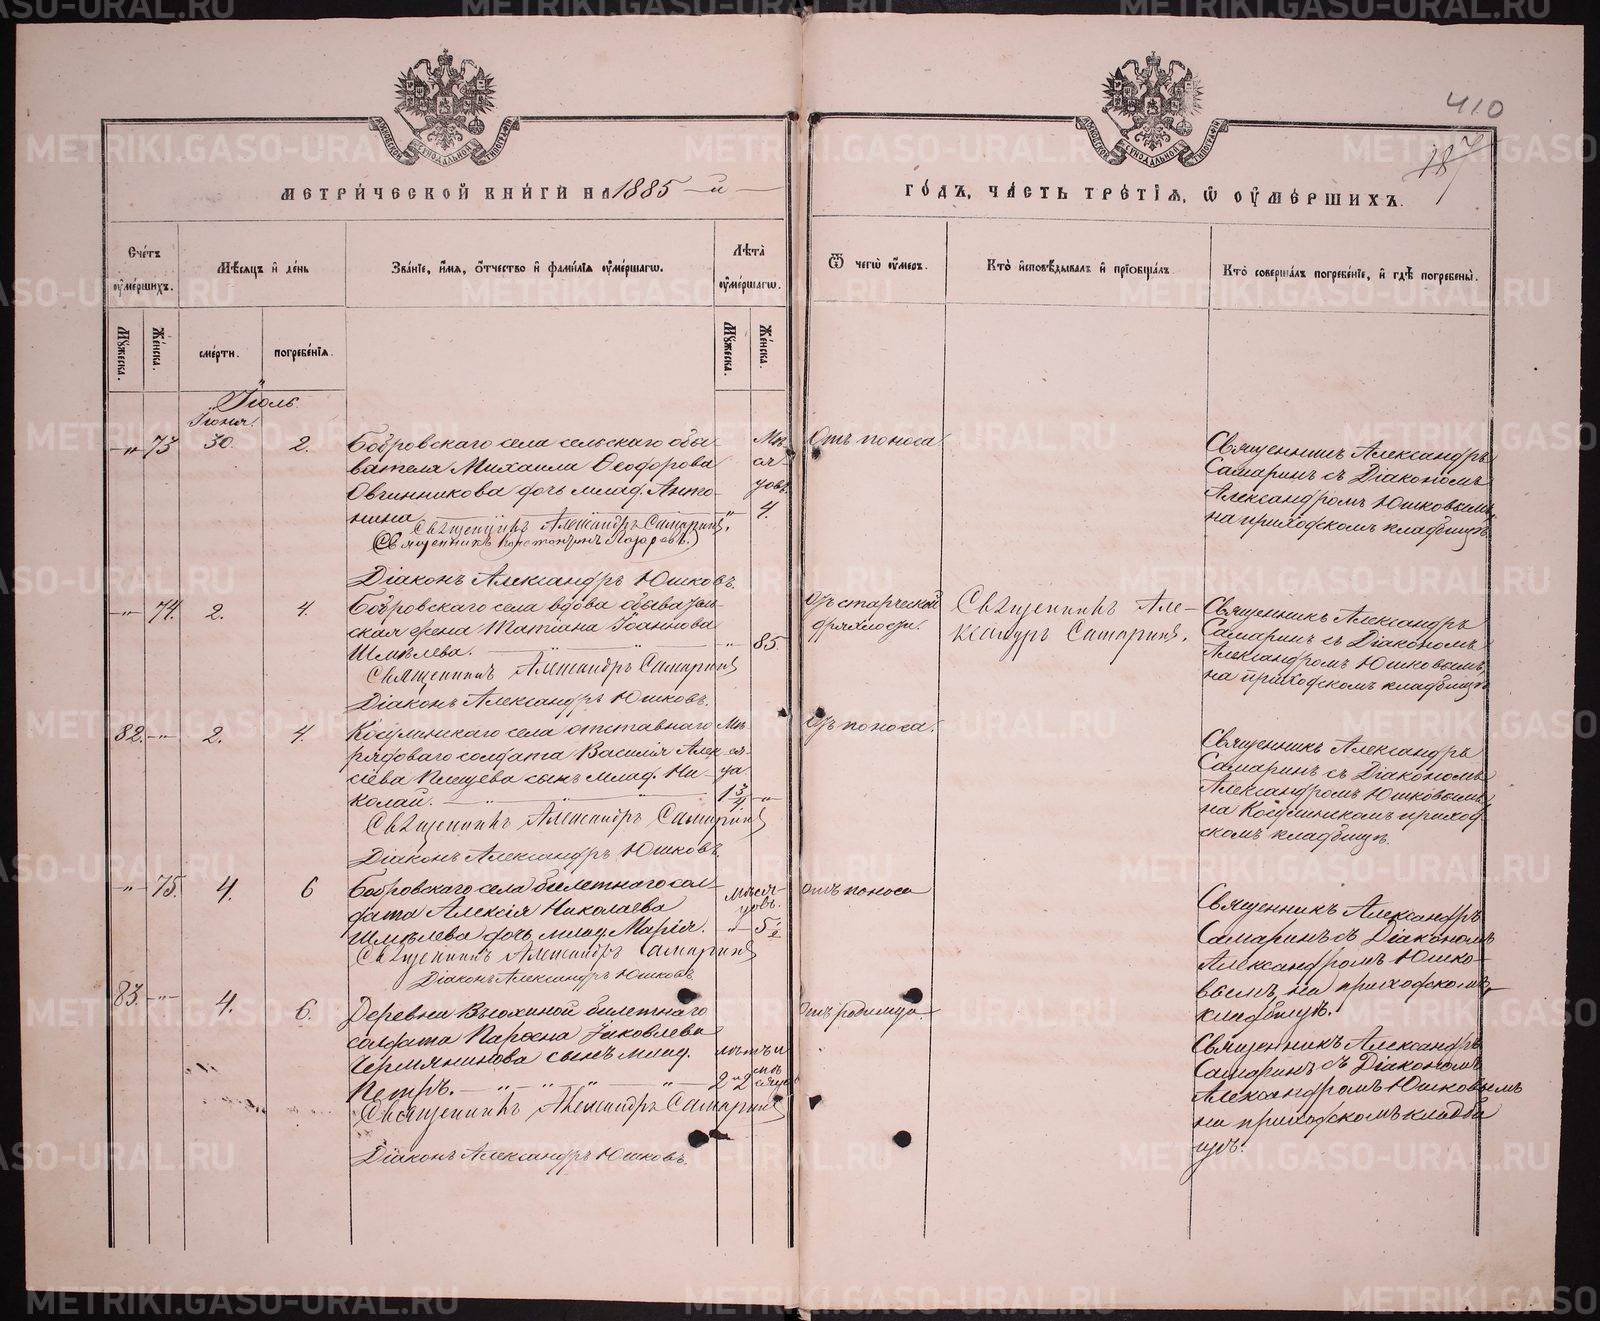 410
187
МЕТРИЧЕСКОЙ КНИГИ НА 1885 -й-
ГОДЪ, ЧАСТЬ ТРЕТІЯ, Ѿ ОУМЕРШИХЪ.
Счетъ оумершихъ.
Мѣсяцъ и день
Званіе, имя, отчество и фамилія оумершагѡ.
Лѣта оумершагѡ.
Ѿ чегѡ оумеръ.
Кто исповѣдывалъ и пріобщалъ.
Кто совершалъ погребеніе, и гдѣ погребены.
Мужеска.
Женска.
смерти.
погребенія.
Мужеска.
Женска.
Іюль.
Іюня.
-"- 73 30. 2.
Бобровскаго села сельскаго обы-
вателя Михаила Ѳеодорова
Овчинникова дочь млад. Анто-
нина
Священникъ Александръ Самаринъ.
(Священникъ Константинъ
Діаконъ Александръ Юшковъ.
Мѣ-
ся-
цовъ.
" 4.
Отъ поноса
Священникъ Александръ
Самаринъ съ Діакономъ
Александромъ Юшковымъ,
на приходскомъ кладбищѣ
-"- 74. 2. 4.
Бобровскаго села вдова обыватель-
ская жена Татіана Іоаннова
Шмѣлева.
Священникъ Александръ Самаринъ
Діаконъ Александръ Юшковъ.
" 85.
Отъ старческой
дряхлости.
Священникъ Але-
ксандръ Самаринъ.
Священникъ Александръ
Самаринъ съ Діакономъ
Александромъ Юшковымъ,
на приходскомъ кладбищѣ
82. -"- 2. 4.
села отставнаго
рядоваго солдата Василія Алек-
сіева Плещева сынъ млад. Ни-
колай.
Священникъ Александръ Самаринъ
Діаконъ Александръ Юшковъ.
Мѣ-
ся-
ца
1 3/4. -"-
Отъ поноса.
Священникъ Александръ
Самаринъ съ Діакономъ
Александромъ Юшковымъ,
на приход-
скомъ кладбищѣ.
-"- 75. 4. 6
Бобровскаго села билетнаго сол-
дата Алексія Николаева
Шмѣлева дочь млад. Марія.
Священникъ Александръ Самаринъ
Діаконъ Александръ Юшковъ
мѣся-
цовъ.
-"- 5 1/2
отъ поноса
Священникъ Александръ
Самаринъ съ Діакономъ
Александромъ Юшко-
вымъ, на приходскомъ
кладбищѣ.
83. -"- 4. 6.
Деревни Вьюхиной билетнаго
солдата Парѳена Іаковлева
Чермянинова сынъ млад.
Петръ.
Священникъ Александръ Самаринъ
Діаконъ Александръ Юшковъ.
лѣтъ и
2 и 2 мѣсяца
отъ родимца.
Священникъ Александръ
Самаринъ съ Діакономъ
Александромъ Юшковымъ
на приходскомъ кладби-
щѣ.